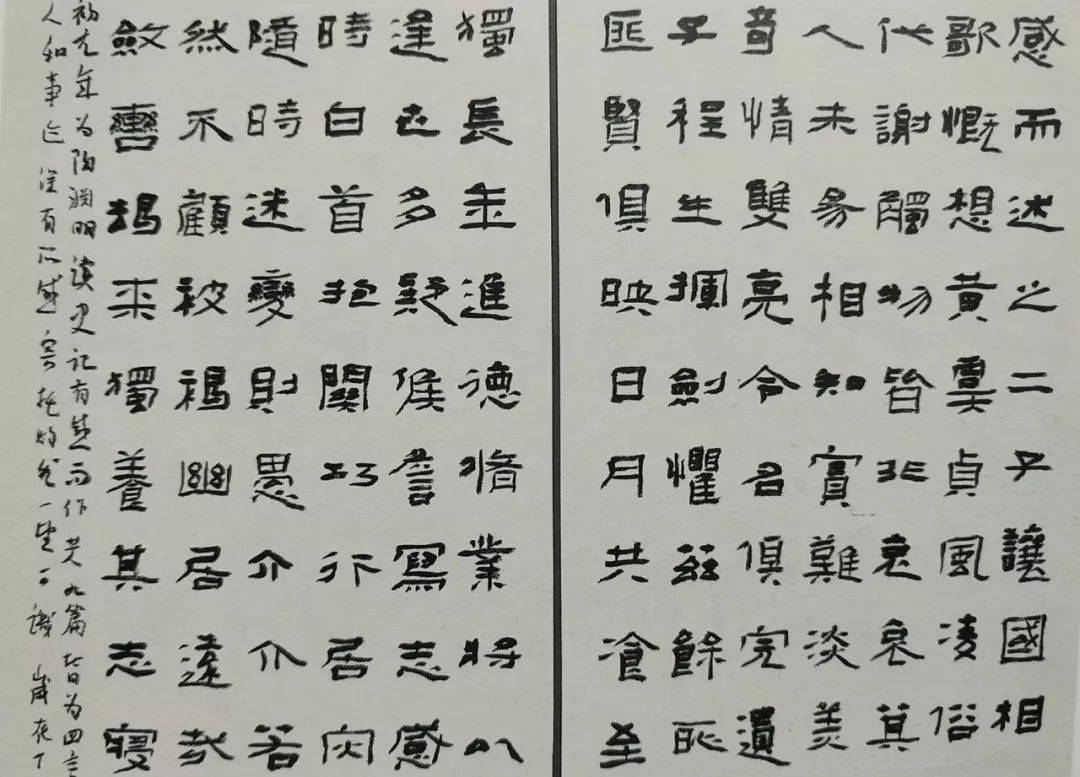 感而述之二子讓國相
歌慨想黃虞貞風凌俗
代謝觸物皆非哀哀其
人未易相知實難淡美
奇情雙亮令名俱完遺
子程生揮劍懼茲餘恥
匪賢俱映日月共飡至
獨長年進德脩業將以
逢世多疑候詹寫志感
時白首抱關巧行居災
隨時迷變則愚介介若
然不顧被褐幽居遠哉
斂轡朅來獨養其志寢
年为陶渊明读史记有感而作共九篇皆为四言
人和事迹深有所感寄托 一望可識 歲在丁